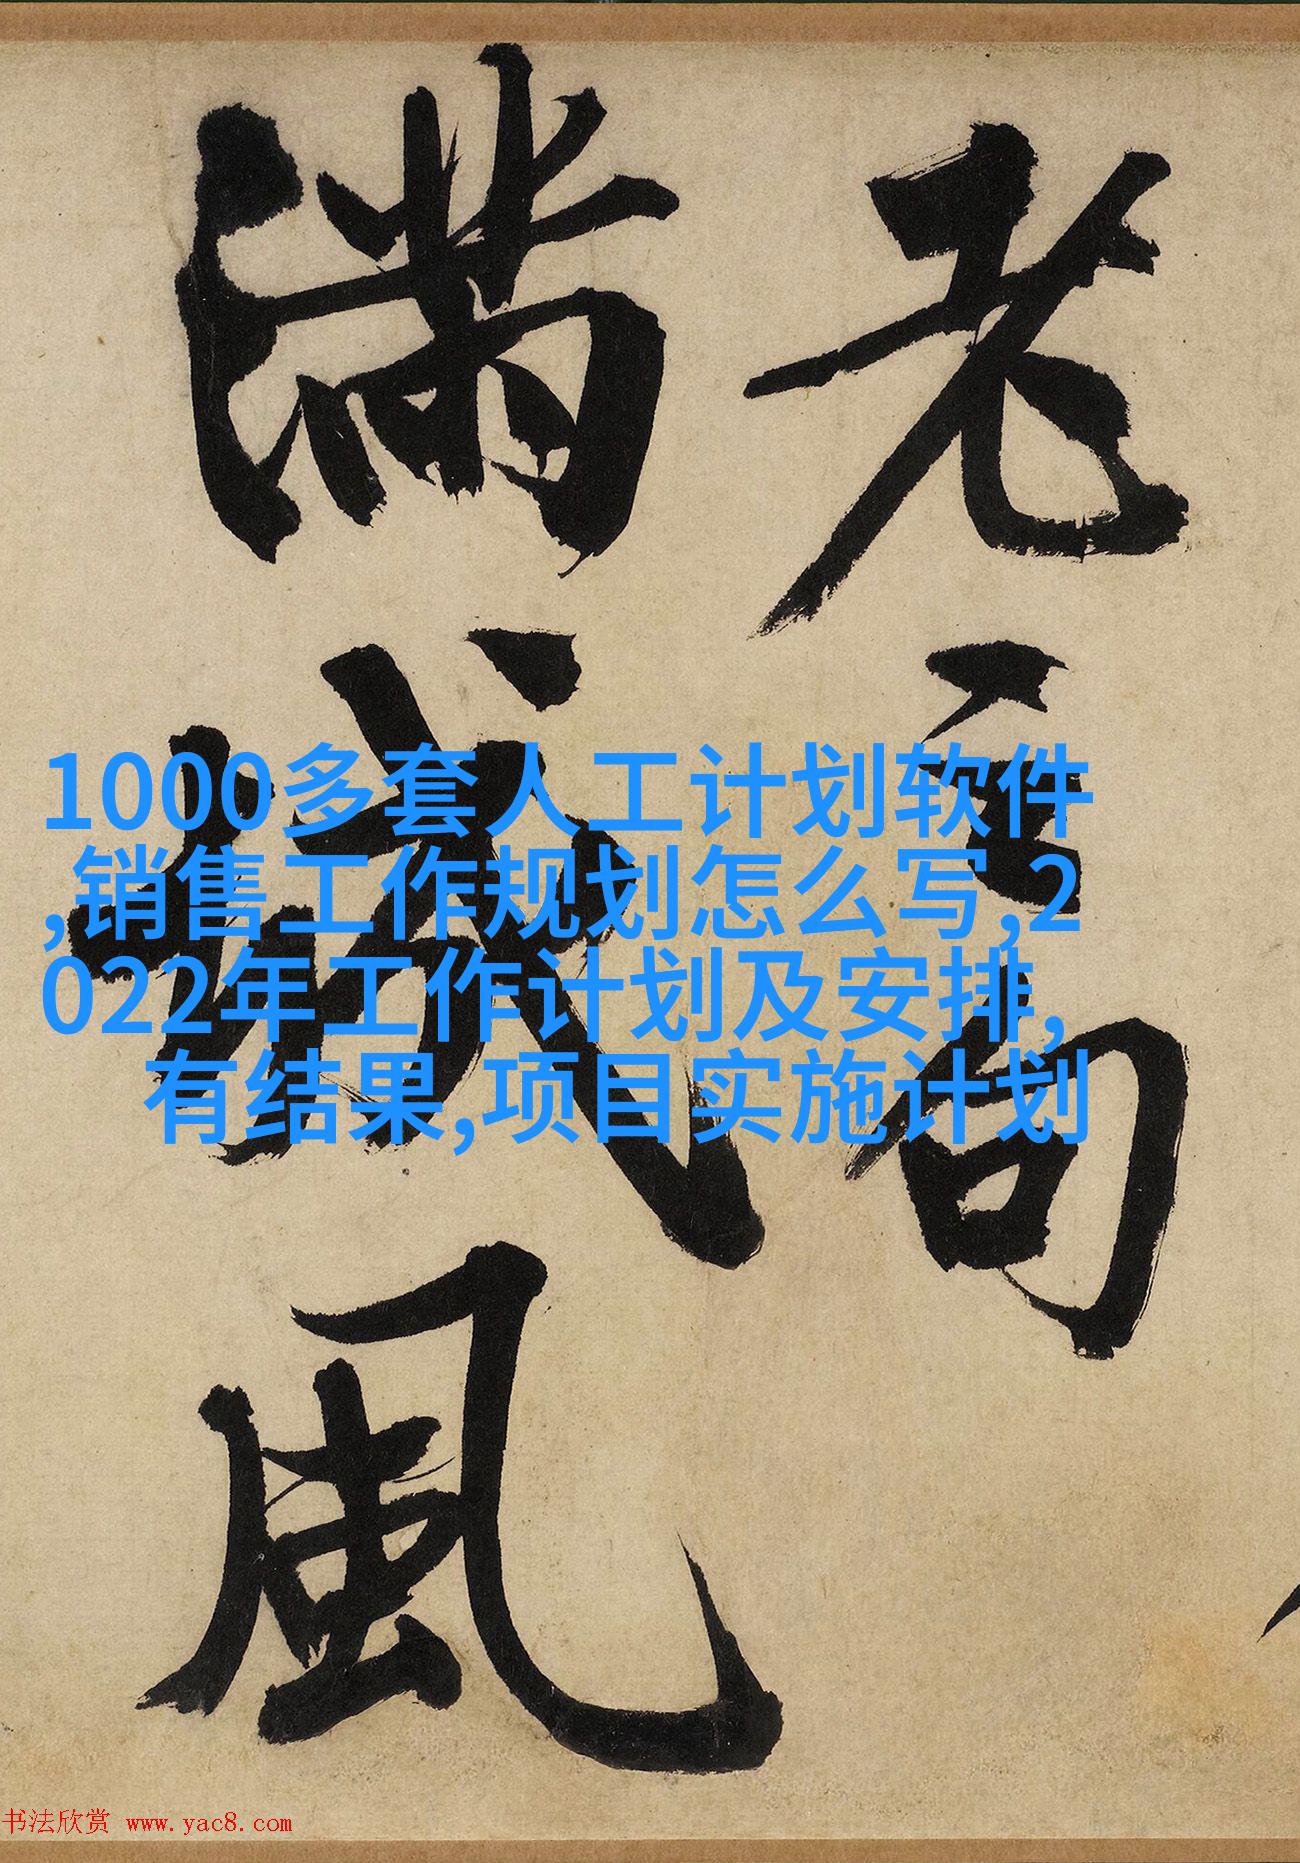 老云句
满城風
1000多套人工计划软件
,销售工作规划怎么写,2
022年工作计划及安排,
有结果,项目实施计划
书法欣赏 www.yac8.com